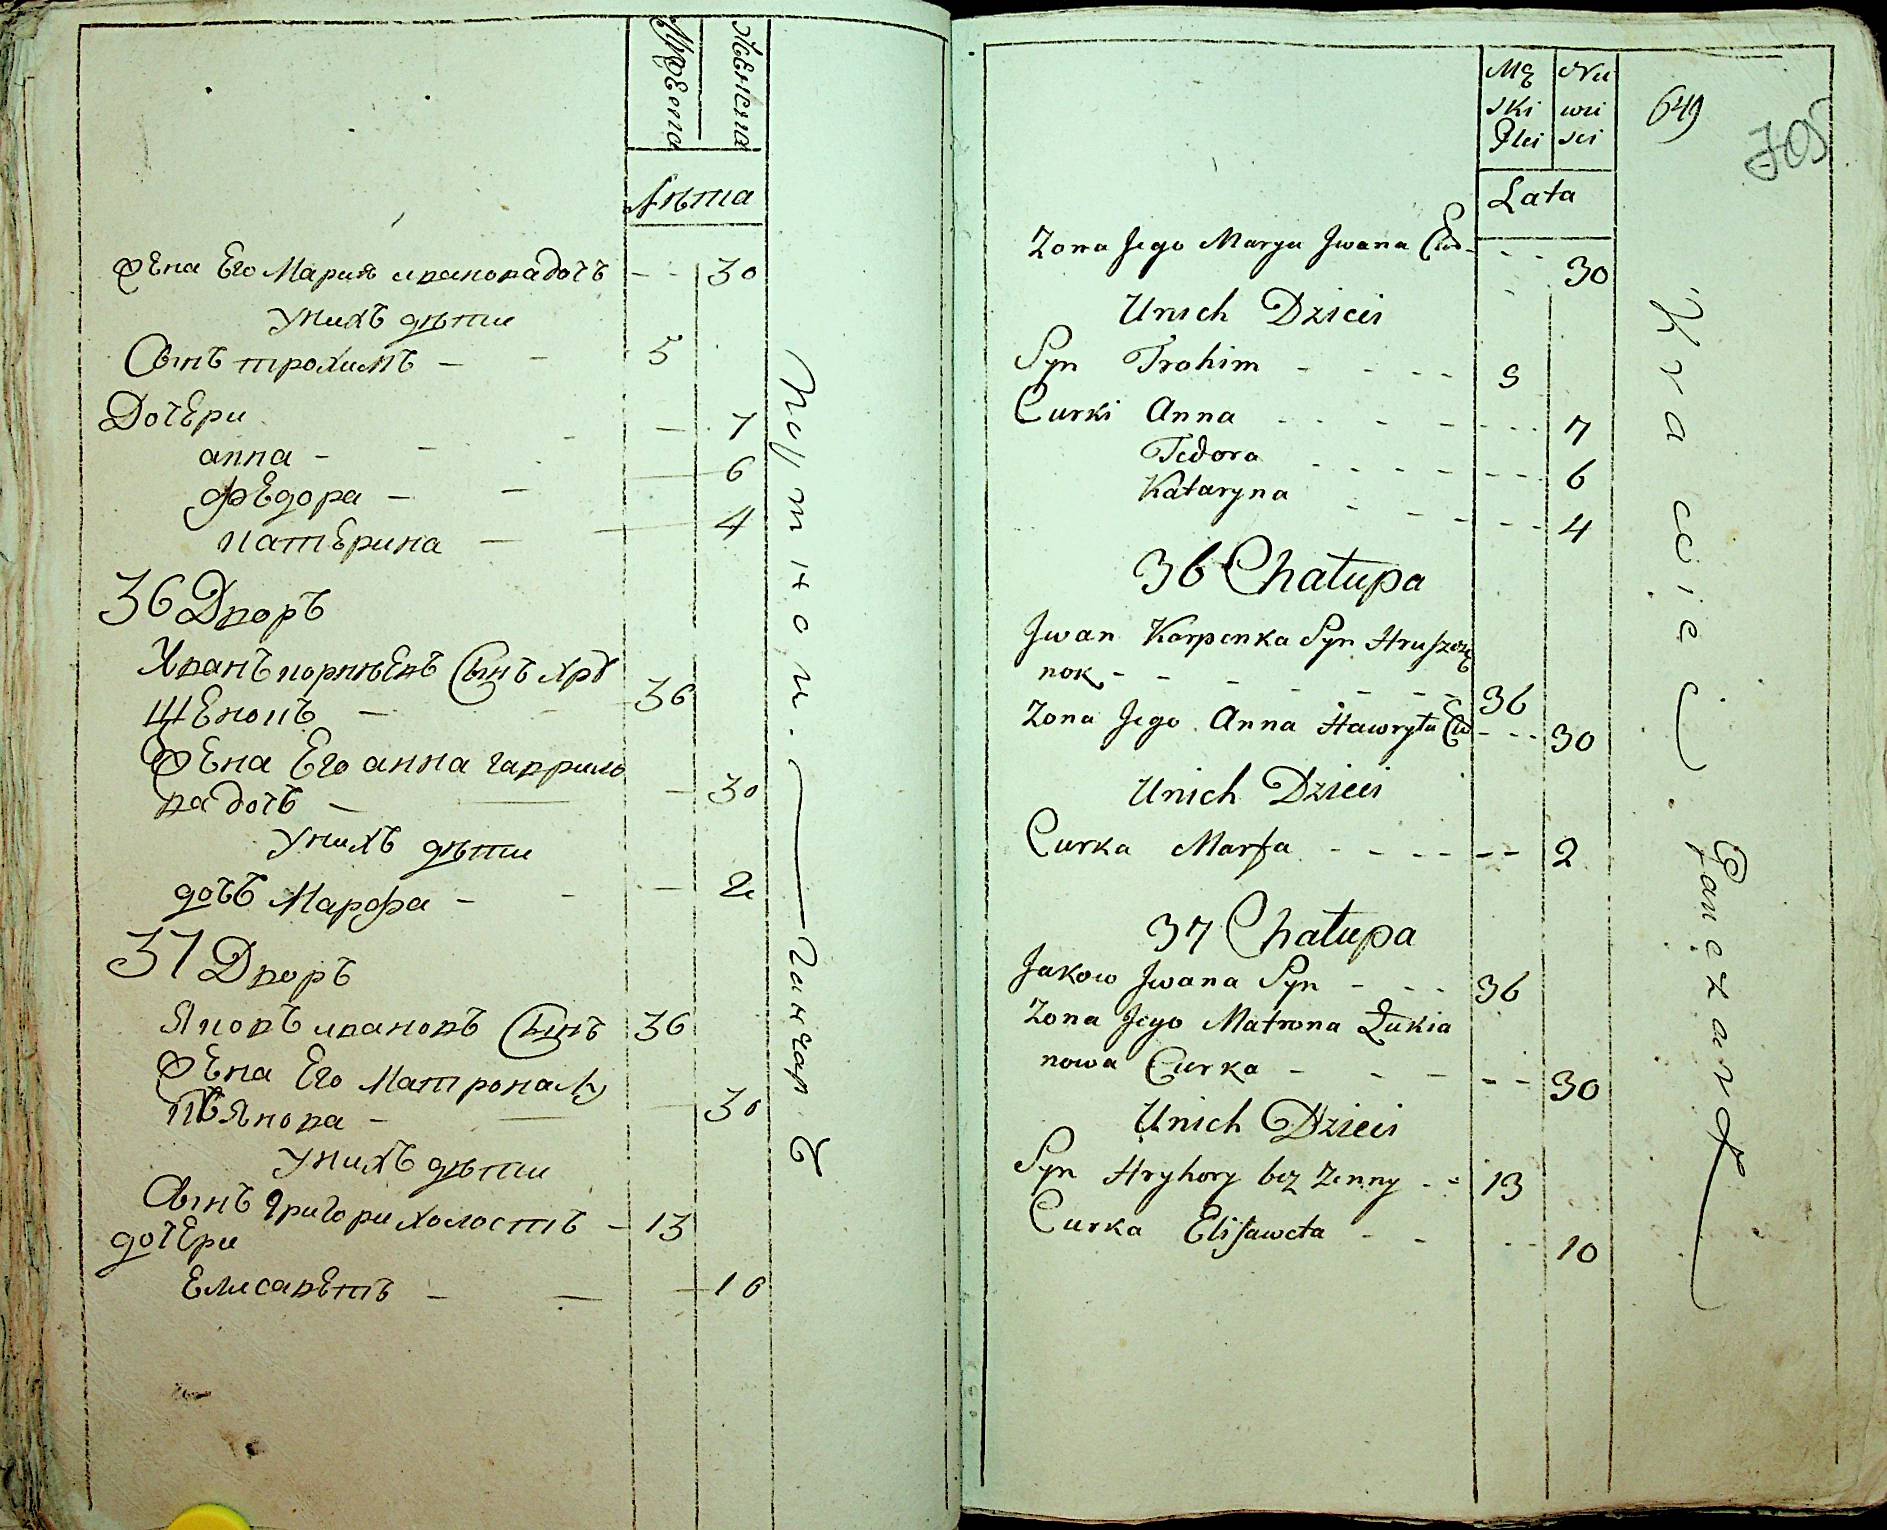 Мужеска
Женска
Лѣта
Жена Его Мария иванова дочъ - - 30
У нихъ дѣти
Сынъ трохимъ - - 5
Дочери
анна - - - 7
федора - - 6
катерина - 4
36 Дворъ
Иванъ карпѣенъ Сынъ хру
щенокъ - 36
Жена Его анна гаврило
ва дочъ - 30
У нихъ дѣти
дочъ Марфа - - 2
37 Дворъ
Яковъ ивановъ Сынъ 36
Жена Его Матрона Лу
кьянова - 30
У нихъ дѣти
Сынъ григори холостъ - 13
дочери
Елисаветъ - - 10
Портной.
Ганчаръ
Mę Nie
ski wie
Płci sci
649
705
Lata
Zona Jego Marya Jwana Cur - - - 30
Unich Dzieci
Syn Trohim - - - - 5
Curki Anna - - - - - - - 7
Fedora - - - - - - - 6
Kataryna - - - - - - 4
36 Chałupa
Jwan Karpenka Syn Hruszcze
nok - - - - - - - 36
Zona Jego Anna Hawryła Cur - - - 30
Unich Dzieci
Curka Marfa - - - - - - 2
37 Chałupa
Jakow Jwana Syn - - - 36
Zona Jego Matrona Łukia
nowa Curka - - - - - - 30
Unich Dzieci
Syn Hryhory bez Zenny - - 13
Curka Elisaweta - - - - 10
Krawiec.
Ganczarz